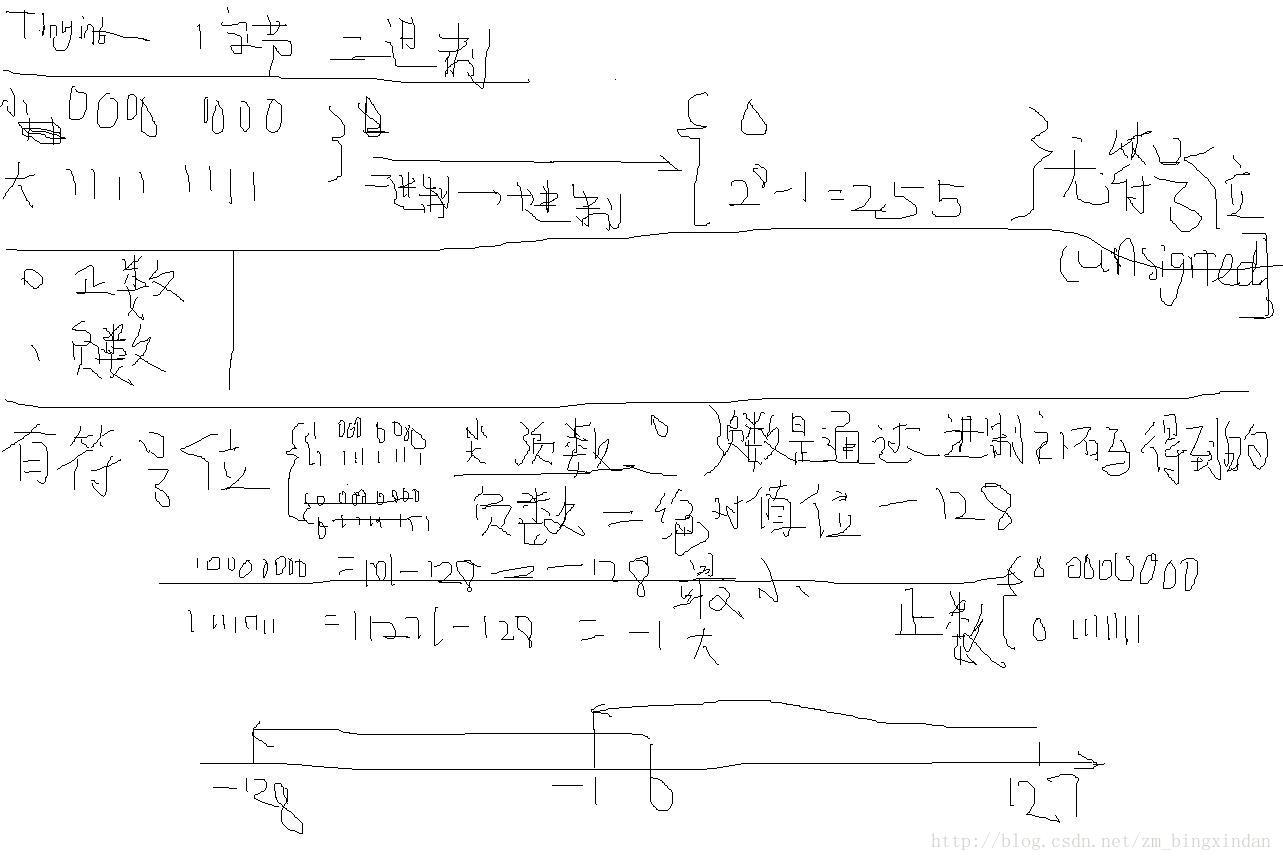 Tinyint 1字节 二进制
小 0000 1000 0
大 1111 1111
二进制→十进制
0
2^8-1=255
无符号位
(unsigned)
0 正数
1 负数
有符号位
1 000 0000
1 111 1111
负数 0 负数是通过二进制补码得到的
负数=绝对值位-128
10000000 =|0|-128=-128 最小
1111111 =|127|-128 =-1 大
正数
0 0000000
0 111111
-128 -1 0 127
http://blog.csdn.net/zm_bingxindan